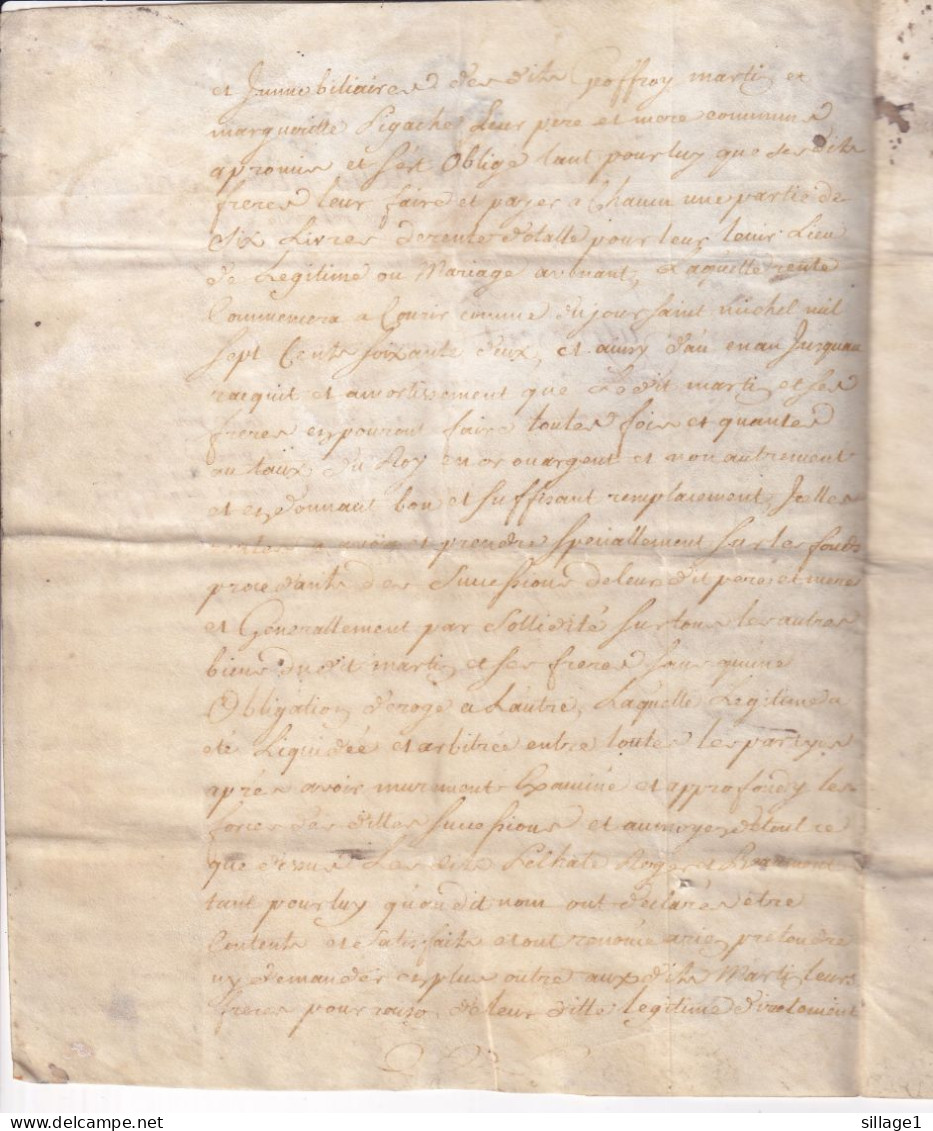 et Immobiliaires desdits Geoffroy marti; et
margueritte Pigache Leur pere et mere communs
apromis et sést Obligé tant pour luy que sesdits
freres leur faire et payer a Chacun une partie de
Six Livres derente dotalle pour leur tenir Lieu
de Legitime ou Mariage avenant, Laquelle rente
Commencera a Courir comme du jour saint michel mil
sept Cents soixante deux, et ainsy dan en an Jusquau
racquit et amortissement que Ledit marti; et ses
freres en pouront faire toutes fois et quantes
au taux du Roy en or ou argent et non autrement
et en donnant bon et suffisant remplacement, Icelles
a avoir et prendre speciallement sur les fonds
procedants des Successions deleurdit pere et mere
et Generallement par Sollidité sur tous les autres
biens dudit marti; et ses freres sans quune
Obligation deroge a Lautre, Laquelle Legitime a
eté Liquidée et arbitrée entre toutes les partyes
aprés avoir murement Examiné et approfondy les
forces desdittes successions et aumoyen detout ce
que dessus Lesdits Pelhate Roger et
tant pour luy quaudit nom ont déclarés être
Contents et satisfaits et ont renoncé arien pretendre
ny demander en plus outre auxdits Marti; leurs
freres pour raison de leur ditte legitime droitement
sillage1